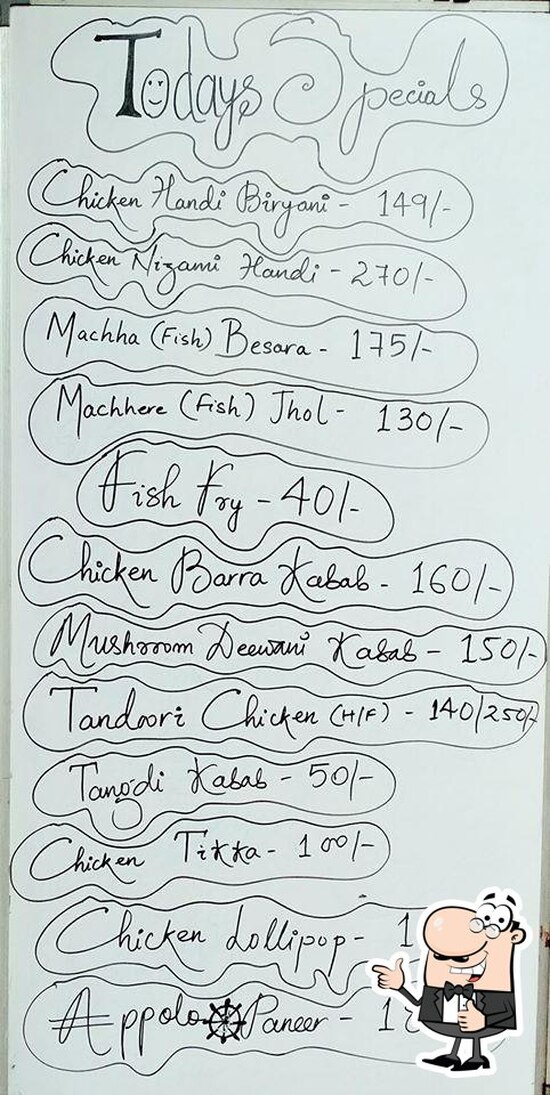 Todays Specials
Chicken Handi Biryani - 149/-
Chicken Nizami Handi - 270/-
Machha (Fish) Besara - 175/-
Machhere (Fish) Jhol - 130/-
Fish Fry - 40/-
Chicken Barra Kabab - 160/-
Mushroom Deewani Kabab - 150/-
Tandoori Chicken (H/F) - 140/250/-
Tangdi Kabab - 50/-
Chicken Tikka - 100/-
Chicken Lollipop -
Appolo Paneer -